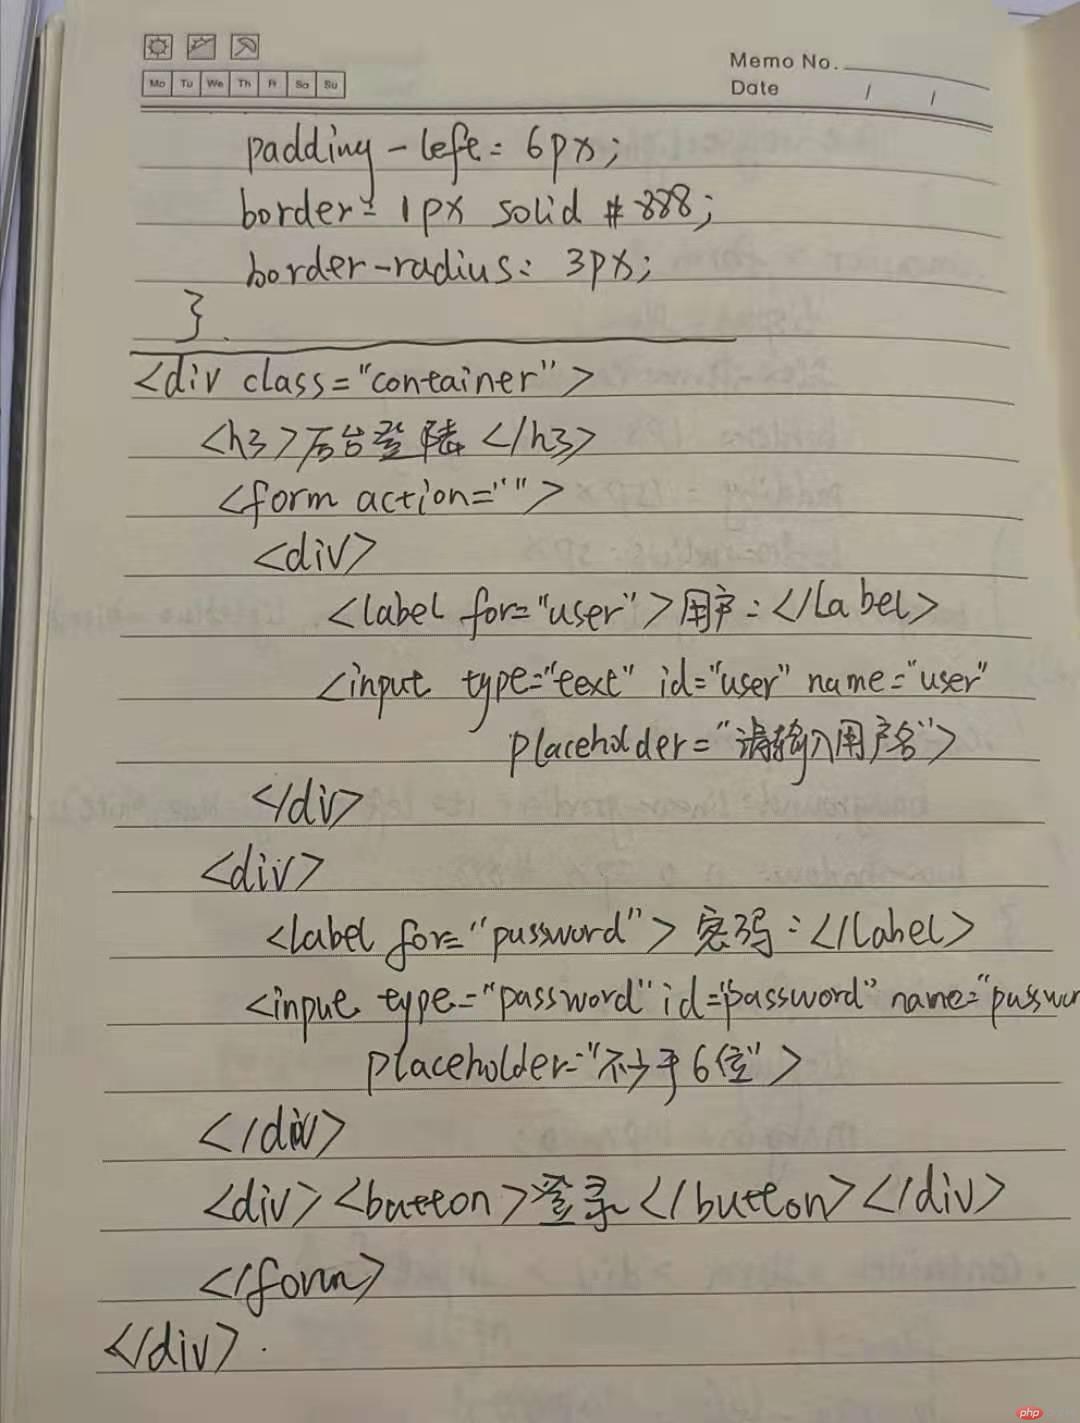 Memo No.
Mo Tu We Th Fr Sa Su
Date / /
padding-left: 6px;
border: 1px solid #888;
border-radius: 3px;
}
<div class="container">
<h3>后台登陆</h3>
<form action="">
<div>
<label for="user">用户:</label>
<input type="text" id="user" name="user"
placeholder="请输入用户名">
</div>
<div>
<label for="password">密码:</label>
<input type="password" id="password" name="passwor
placeholder="不少于6位">
</div>
<div><button>登录</button></div>
</form>
</div>.
php